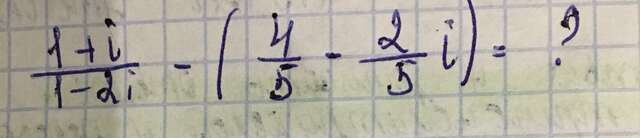 (1+i)/(1-2i) - (4/5 - 2/5 i) = ?